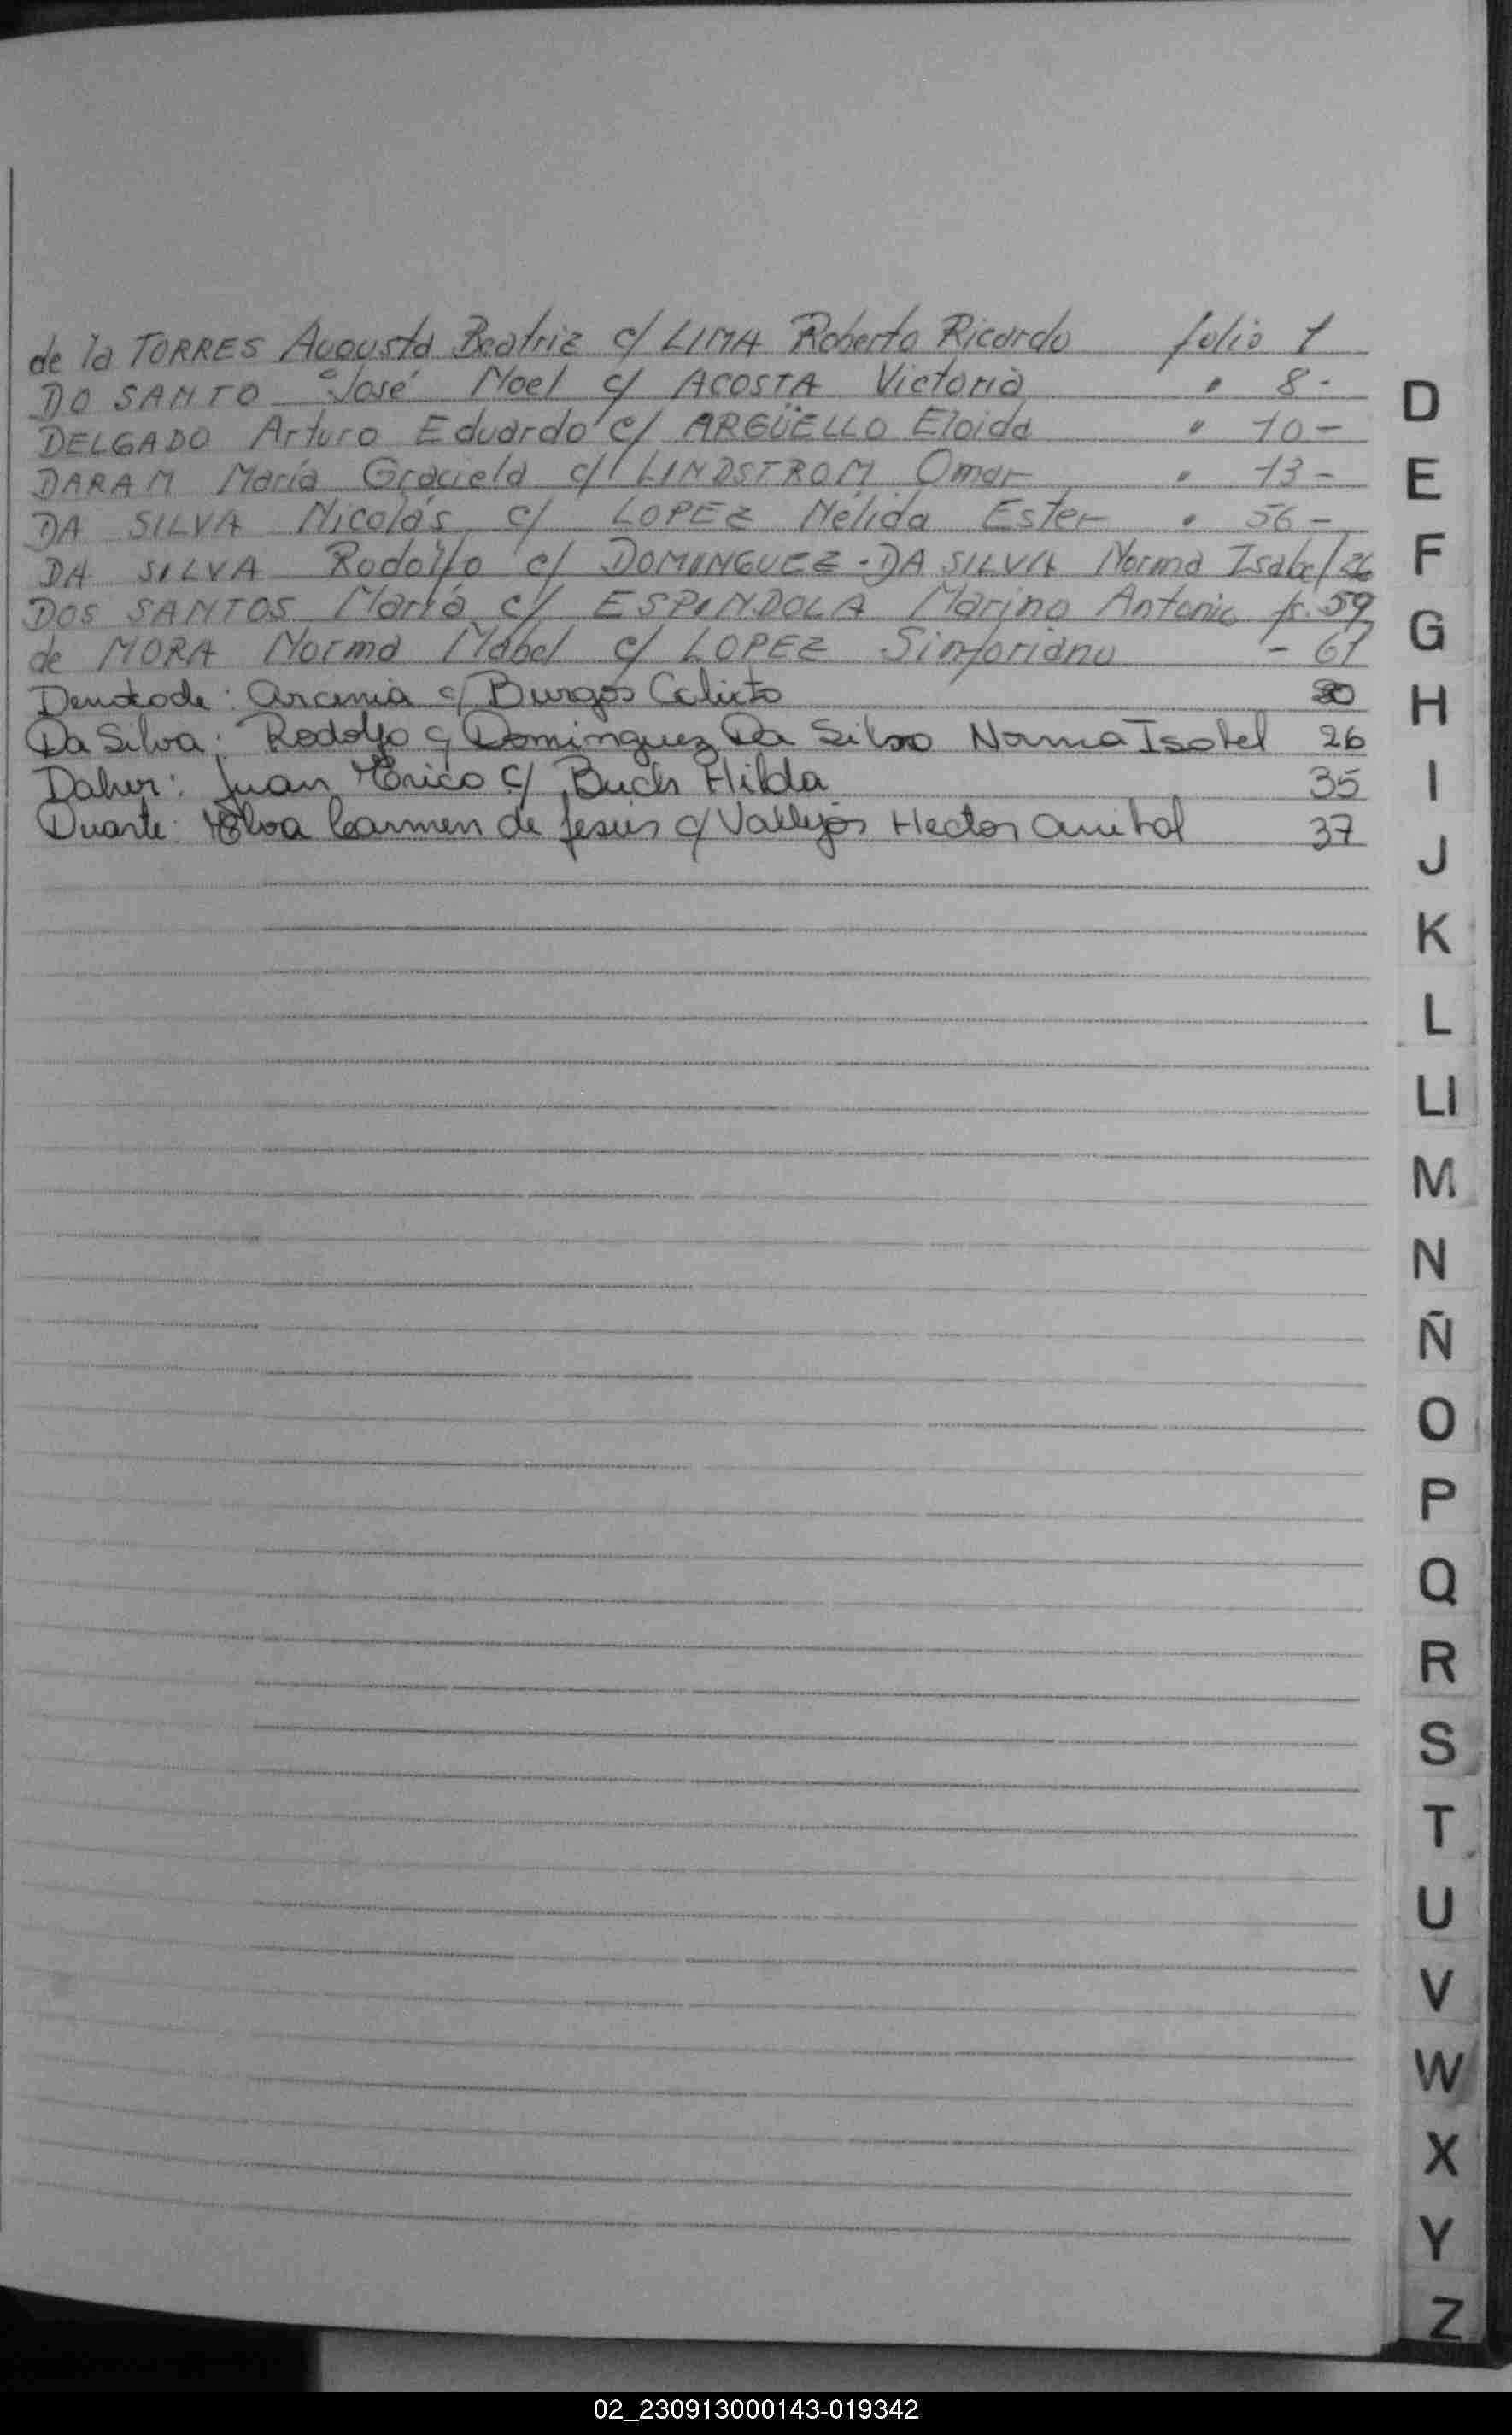 de la TORRES Augusta Beatriz c/ LIMA Roberto Ricardo folio 1
DO SANTO José Noel c/ ACOSTA Victoria " 8-
DELGADO Arturo Eduardo c/ ARGÜELLO Eloida " 10-
DARAM María Graciela c/ LINDSTROM Omar " 13-
DA SILVA Nicolás c/ LOPEZ Nélida Ester " 56-
DA SILVA Rodolfo c/ DOMINGUEZ-DA SILVA Norma Isabel 26
DOS SANTOS María c/ ESPINDOLA Marino Antonio fs. 59
de MORA Norma Mabel c/ LOPEZ Sinforiano - 61
c/ Burgos
Da Silva: Rodolfo c/ Dominguez Da Silva Norma Isabel 26
Daher: Juan Erico c/ Buch Hilda 35
Duarte: Elva Carmen de Jesús c/ Vallejos Hector Anibal 37
D
E
F
G
H
I
J
K
L
Ll
M
N
Ñ
O
P
Q
R
S
T
U
V
W
X
Y
Z
02_230913000143-019342